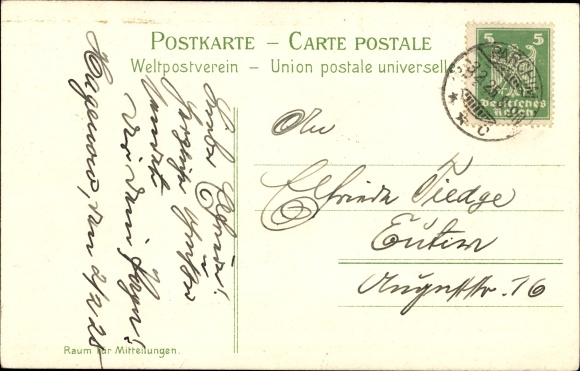 POSTKARTE – CARTE POSTALE
Weltpostverein – Union postale universelle
5 5
Deutsches Reich
PARCHIM
An
Elfriede Tiedge
Eutin
Auguststr. 16
Liebe
Herzliche Grüße
sendet
Dir Dein
Hagenow, den 2/2 26
Raum für Mitteilungen.